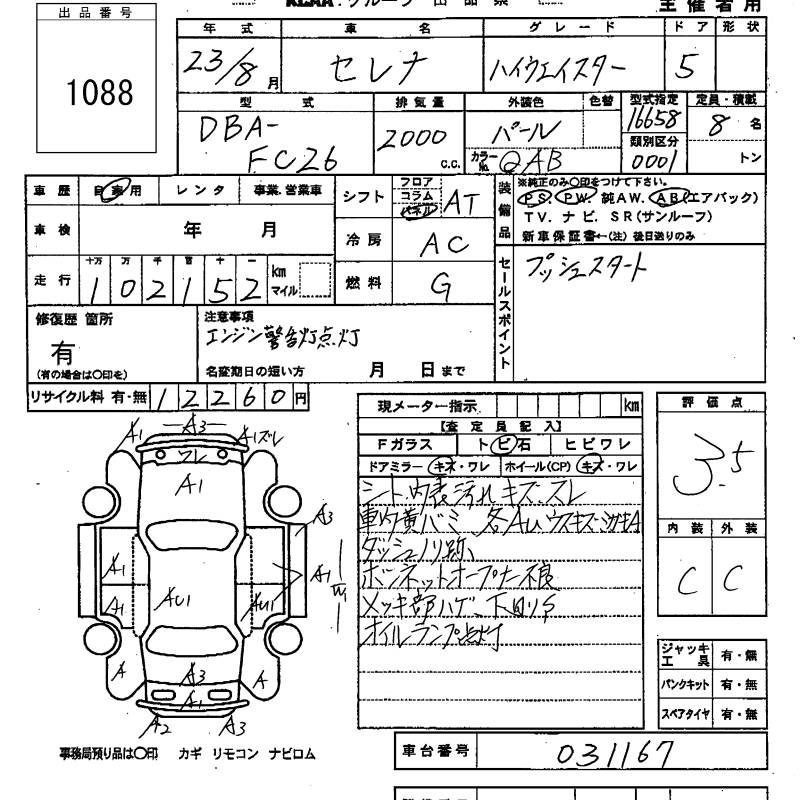 KCAA・グループ 出品票 主催者用
出品番号
1088
年式 車名 グレード ドア 形状
23/8月 セレナ ハイウェイスター 5
型式 排気量 外装色 色替 型式指定 定員・積載
DBA-FC26 2000 c.c. パール 16658 8名
カラーNo. QAB 類別区分 0001 トン
車歴 自家用 レンタ 事業.営業車
シフト フロア コラム パネル AT
装備品 ※純正のみ○印をつけて下さい。
PS. PW. 純AW. AB(エアバック)
TV. ナビ. SR(サンルーフ)
新車保証書←(注)後日送りのみ
車検 年 月
冷房 AC
走行 十万 万 千 百 十 一
102152 km マイル
燃料 G
セールスポイント プッシュスタート
修復歴 箇所
有
(有の場合は○印を)
注意事項
エンジン警告灯点灯
名変期日の短い方 月 日まで
リサイクル料 有・無 12260円
現メーター指示 km
【査定員記入】
Fガラス トビ石 ヒビワレ
ドアミラー キズ・ワレ ホイール(CP) キズ・ワレ
シート、内装汚れ、キズ、スレ
車内黄バミ、各AU、ウスキズ、
ダッシュノリ跡、
ボンネットオープナー不良
メッキ部ハゲ、下回りS
オイルランプ点灯
評価点
3.5
内装 外装
C C
ジャッキ工具 有・無
パンクキット 有・無
スペアタイヤ 有・無
A1 A3 A1ズレ
ワレ
A1
A3
A1 A1 W1
A1 AU1 AU1
A A3 A
A1
A2 A3
事務局預り品は○印 カギ リモコン ナビロム
車台番号 031167